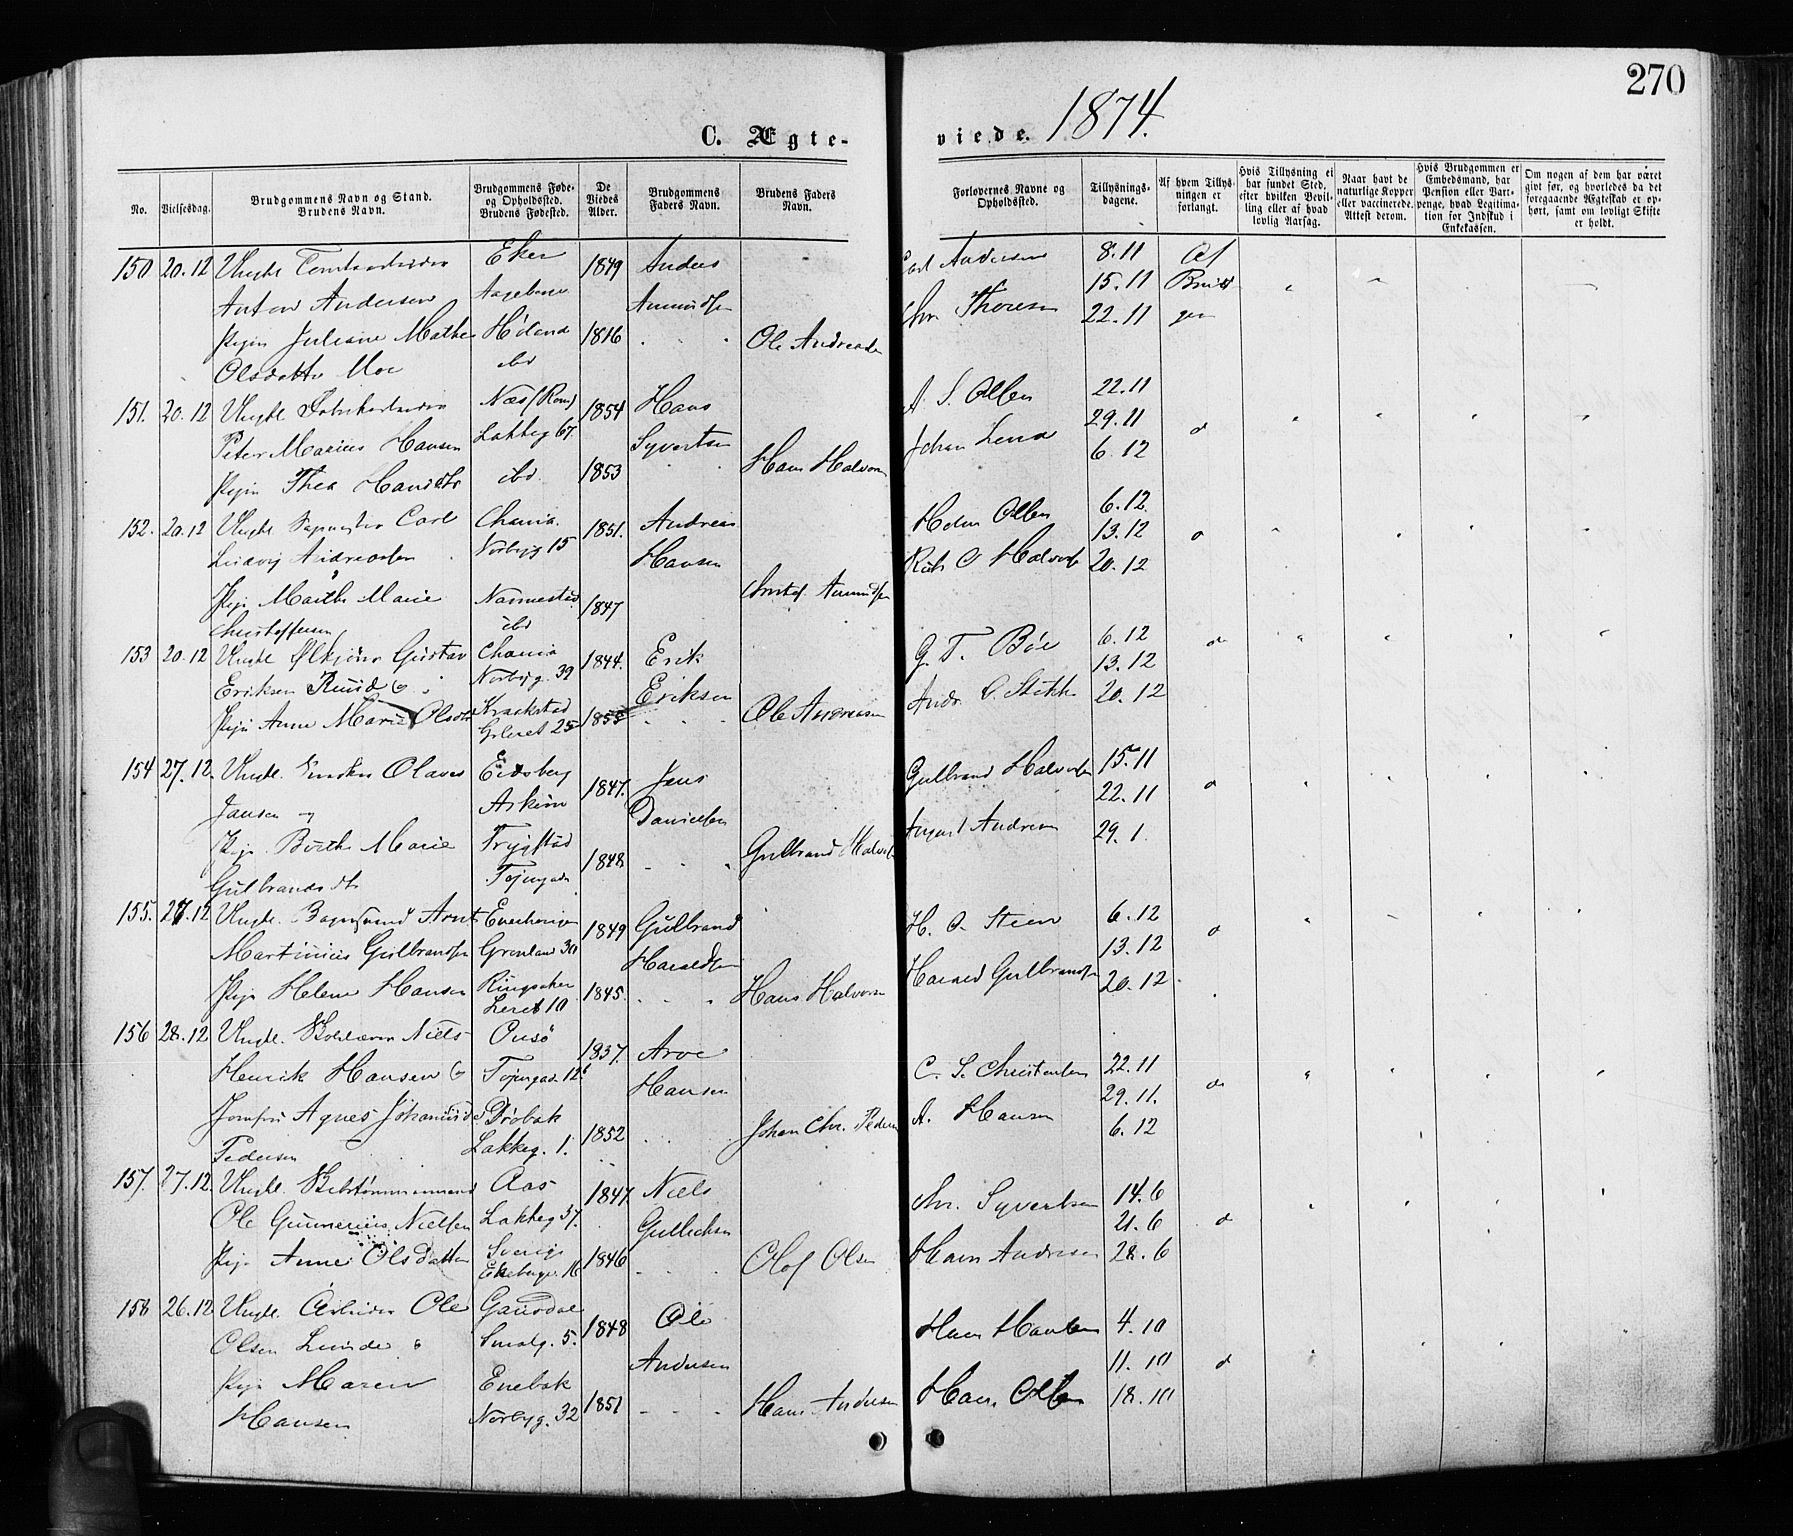 270
C. Ægte- viede. 1874.
No.
Vielsesdag.
Brudgommens Navn og Stand.
Brudens Navn.
Brudgommens Føde-
og Opholdsted.
Brudens Fødested.
De
Viedes
Alder.
Brudgommens
Faders Navn.
Brudens Faders
Navn.
Forlovernes Navne og
Opholdsted.
Tillysnings-
dagene.
Af hvem Tillys-
ningen er
forlangt.
Hvis Tillysning ei
har fundet Sted,
efter hvilken Bevil-
ling eller af hvad
lovlig Aarsag.
Naar havt de
naturlige Kopper
eller vaccinerede.
Attest derom.
Hvis Brudgommen er
Embedsmand, har
Pension eller Vart-
penge, hvad Legitima-
tion for Indskud i
Enkekassen.
Om nogen af dem har været
givt før, og hvorledes da det
foregaaende Ægteskab er op-
hørt, samt om lovligt Skifte
er holdt.
150 20.12 Ungk. Eker 1849 Anders Carl Andersen 8.11 Af
Anton Andersen Amundsen 15.11
Pigen Juliane Mathea Høland 1846 Ole Andreasen Chr. Thoresen 22.11
Olsdatter Moe ibd
151. 20.12 Ungk. Fabrikarbeider Næs (Rom) 1854 Hans A. S. Olsen 22.11
Peter Marius Hansen Lakkeg 67. Syvertsen Johan Lena 29.11
Pigen Thea Hansdtr ibd. 1853 Hans Halvors 6.12
152. 20.12 Ungk. Carl Chania. 1851. Andreas Olsen 6.12
Ludvig Andreasen Norbyg 15 Hansen 13.12
Pige Marthe Marie Nannestad 1847 Christof. Amundsen 20.12
Christoffersen ibd
153 20.12 Ungk. Gustav Chania 1844. Erik G. T. Bøe 6.12
Eriksen Ruud og Norbyg. 39 Eriksen 13.12
Pige Anne Marie Olsdtr Kraakstad 1855 Ole Andreasen 20.12
Grleret 25
154 27.12. Ungk. Olaves Eidsberg 1847. Jens Gulbrand Halvorsen 15.11
Jansen og Askim Danielsen 22.11
Pige Berthe Marie Trygstad 1848 Gulbrand Halvors August Andresen 29.1.
Gulbrandsdtr Tøjengade
155. 27.12 Ungk. Arnt 1849 Gulbrand H. O. Steen 6.12
Martinius Gulbrandsen Grønland 30 Haraldsen 13.12
Pige Helene Hansen Ringsaker 1845. Hans Halvorsen Harald Gulbrandsen 20.12
Leret 10
156 28.12 Ungk. Niels Onsö 1837. Arve C. S. Christensen 22.11
Henrik Hansen og Tøjengade 12 Hansen 29.11.
Jomfru Agnes Johannide Drøbak 1852 Johan Chr. Pedersen A. Hansen 6.12
Pedersen Lakkeg. 1.
157. 27.12. Ungk. Aas 1847. Niels Chr. Syvertsen 14.6
Ole Gunnerius Nielsen Lakkeg 37. Gullichsen 21.6
Pige Anne Olsdatter Sverige 1846 Olof Olsen Hans Andresen 28.6
Ekeberg. 16
158 26.12 Ungk. Arbeider Ole Gausdal 1848 Ole Hans Hansen 4.10
Olsen Lunde o Smalg. 5. Andersen 11.10
Pige Maren Enebak 1851 Hans Andersen Hans Olsen 18.10
Hansen Norbyg. 32